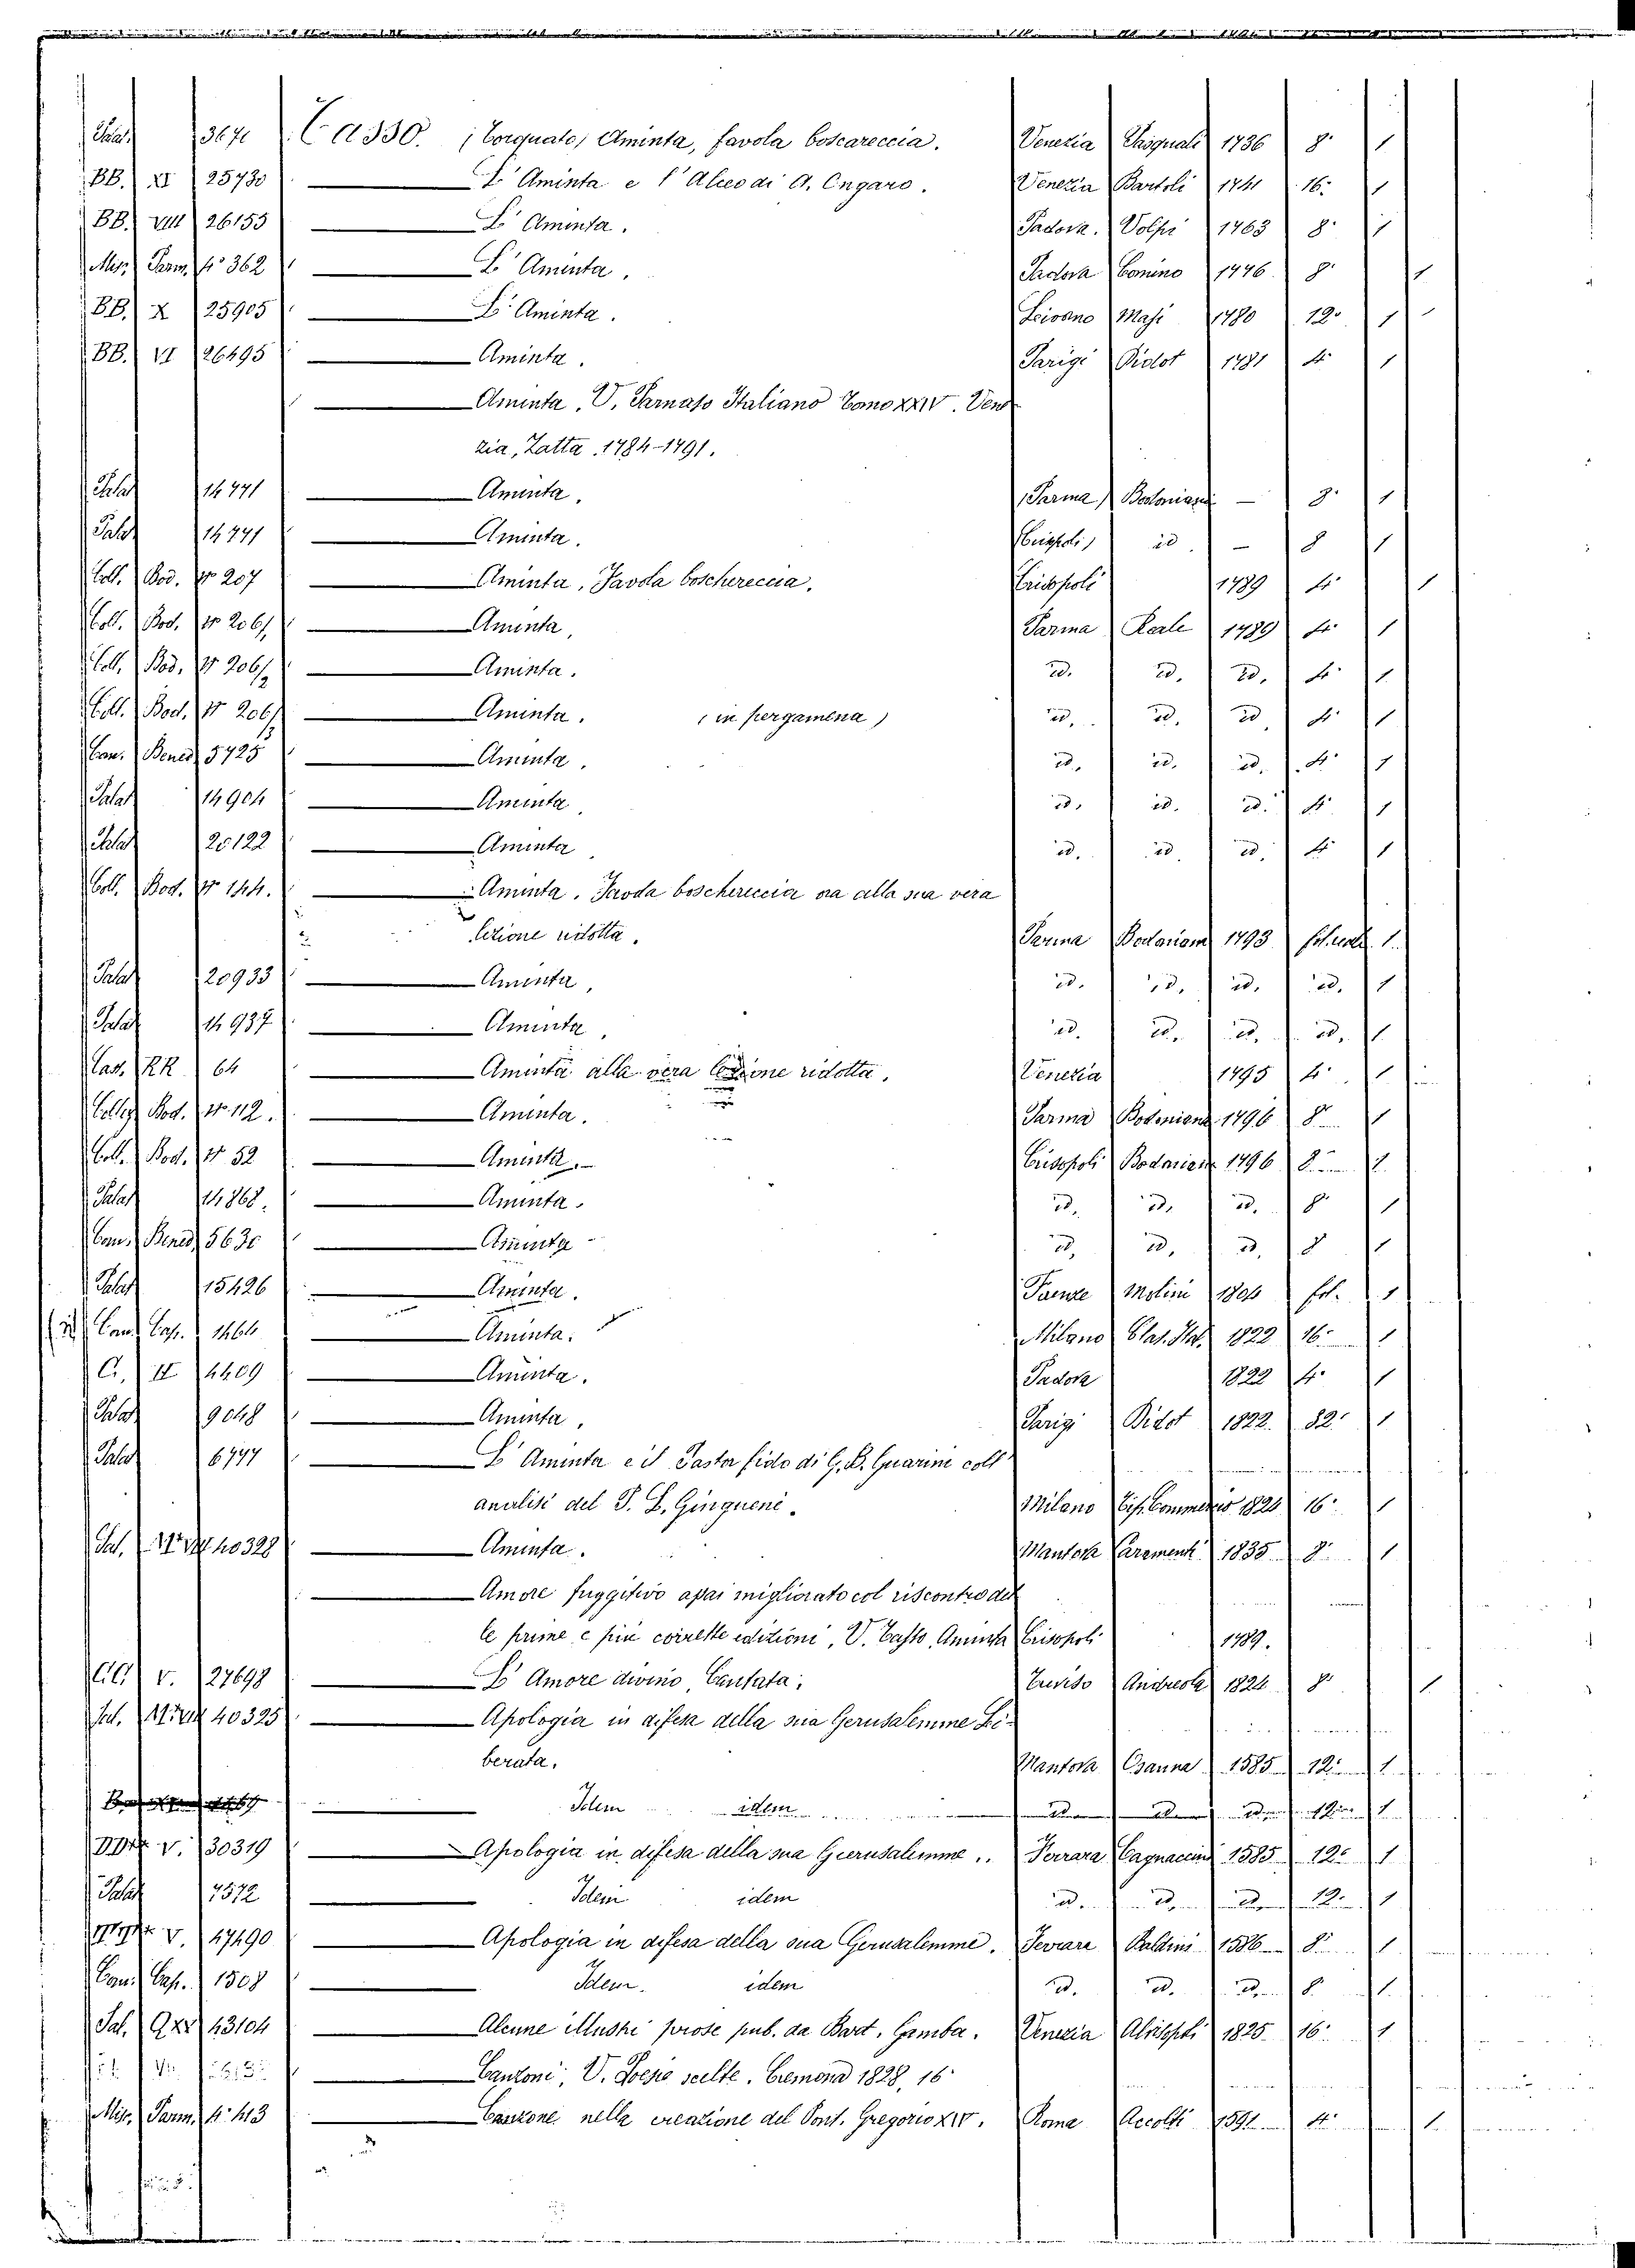 Palat. 3671 Tasso. (Torquato) Aminta, favola boscareccia. Venezia Pasquali 1736 8° 1
BB. XI 25730 — L'Aminta e l'Alceo di A. Ongaro. Venezia Bartoli 1741 16° 1
BB. VIII 26155 — L'Aminta. Padova. Volpi 1763 8° 1
Misc. Parm. 4° 362 — L'Aminta. Padova Comino 1776 8° 1
BB. X 25905 — L'Aminta. Livorno Masi 1780 12° 1
BB. VI 26495 — Aminta. Parigi Didot 1781 4° 1
— Aminta. V. Parnaso Italiano Tomo XXIV. Vene
zia, Zatta 1784-1791.
Palat 14771 — Aminta. (Parma) Bodoniani — 8° 1
Palat 14771 — Aminta. (Crisopoli) id. — 8 1
Coll. Bod. N° 207 — Aminta, Favola boschereccia. Crisopoli 1789 4° 1
Coll. Bod. N° 206/1 — Aminta. Parma Reale 1789 4° 1
Coll. Bod. N° 206/2 — Aminta. id. id. id. 4° 1
Coll. Bod. N° 206/3 — Aminta. (in pergamena) id. id. id. 4° 1
Con. Bened. 5725 — Aminta. id. id. id. 4° 1
Palat 14904 — Aminta id. id. id. 4° 1
Palat 20122 — Aminta id. id. id. 4° 1
Coll. Bod. N° 144. — Aminta. Favola boschereccia ora alla sua vera
lezione ridotta. Parma Bodoniani 1793 1.
Palat 20933 — Aminta, id. id. id. id. 1
Palat 14937 — Aminta, id. id. id. id. 1
Cas. RR. 64 — Aminta alla vera lezione ridotta. Venezia 1795 4° 1
Collez. Bod. N° 112. — Aminta. Parma Bodoniana 1796 8° 1
Coll. Bod. N° 52 — Aminta. Crisopoli Bodoniana 1796 8° 1.
Palat 14868. — Aminta. id. id. id. 8° 1
Con. Bened. 5630 — Aminta id. id. id. 8 1
Palat 15426 — Aminta. Firenze Molini 1804 fol. 1
Con. Cap. 1464 — Aminta. Milano Clas. Ital. 1822 16° 1
C. II 4409 — Aminta. Padova 1822 4° 1
Palat 9048 — Aminta. Parigi Didot 1822. 32° 1
Palat 6777 — L'Aminta e il Pastor fido di G. B. Guarini coll'
analisi del P. L. Ginguené. Milano Tip. Commercio 1824 16° 1
Pal. 40328 — Aminta. Mantova Caramenti 1835 8° 1
— Amore fuggitivo assai migliorato col riscontro del
le prime e più corrette edizioni, V. Tasso, Aminta Crisopoli 1789.
V. 27698 — L'Amore divino, Cantata. Treviso Andreola 1824 8° 1
Pal. 40325 — Apologia in difesa della sua Gerusalemme Li-
berata. Mantova Osanna 1585 12° 1
— Idem idem id. id. id. 12° 1
V. 30319 — Apologia in difesa della sua Gierusalemme.. Ferrara Cagnaccini 1585 12° 1
Palat 7572 — Idem idem id. id. id. 12. 1
V. 47490 — Apologia in difesa della sua Gerusalemme. Ferrara Baldini 1586 8° 1
Con. Cap. 1508 — Idem. idem id. id. id. 8. 1
Pal. 43104 — Alcune illustri prose pub. da Bart. Gamba. Venezia Alvisopoli 1825 16° 1
— Canzoni, V. Poesie scelte. Cremona 1828, 16°
Misc. Parm. 4° 413 — Canzone nella creazione del Pont. Gregorio XIV. Roma Accolti 1591 4° 1